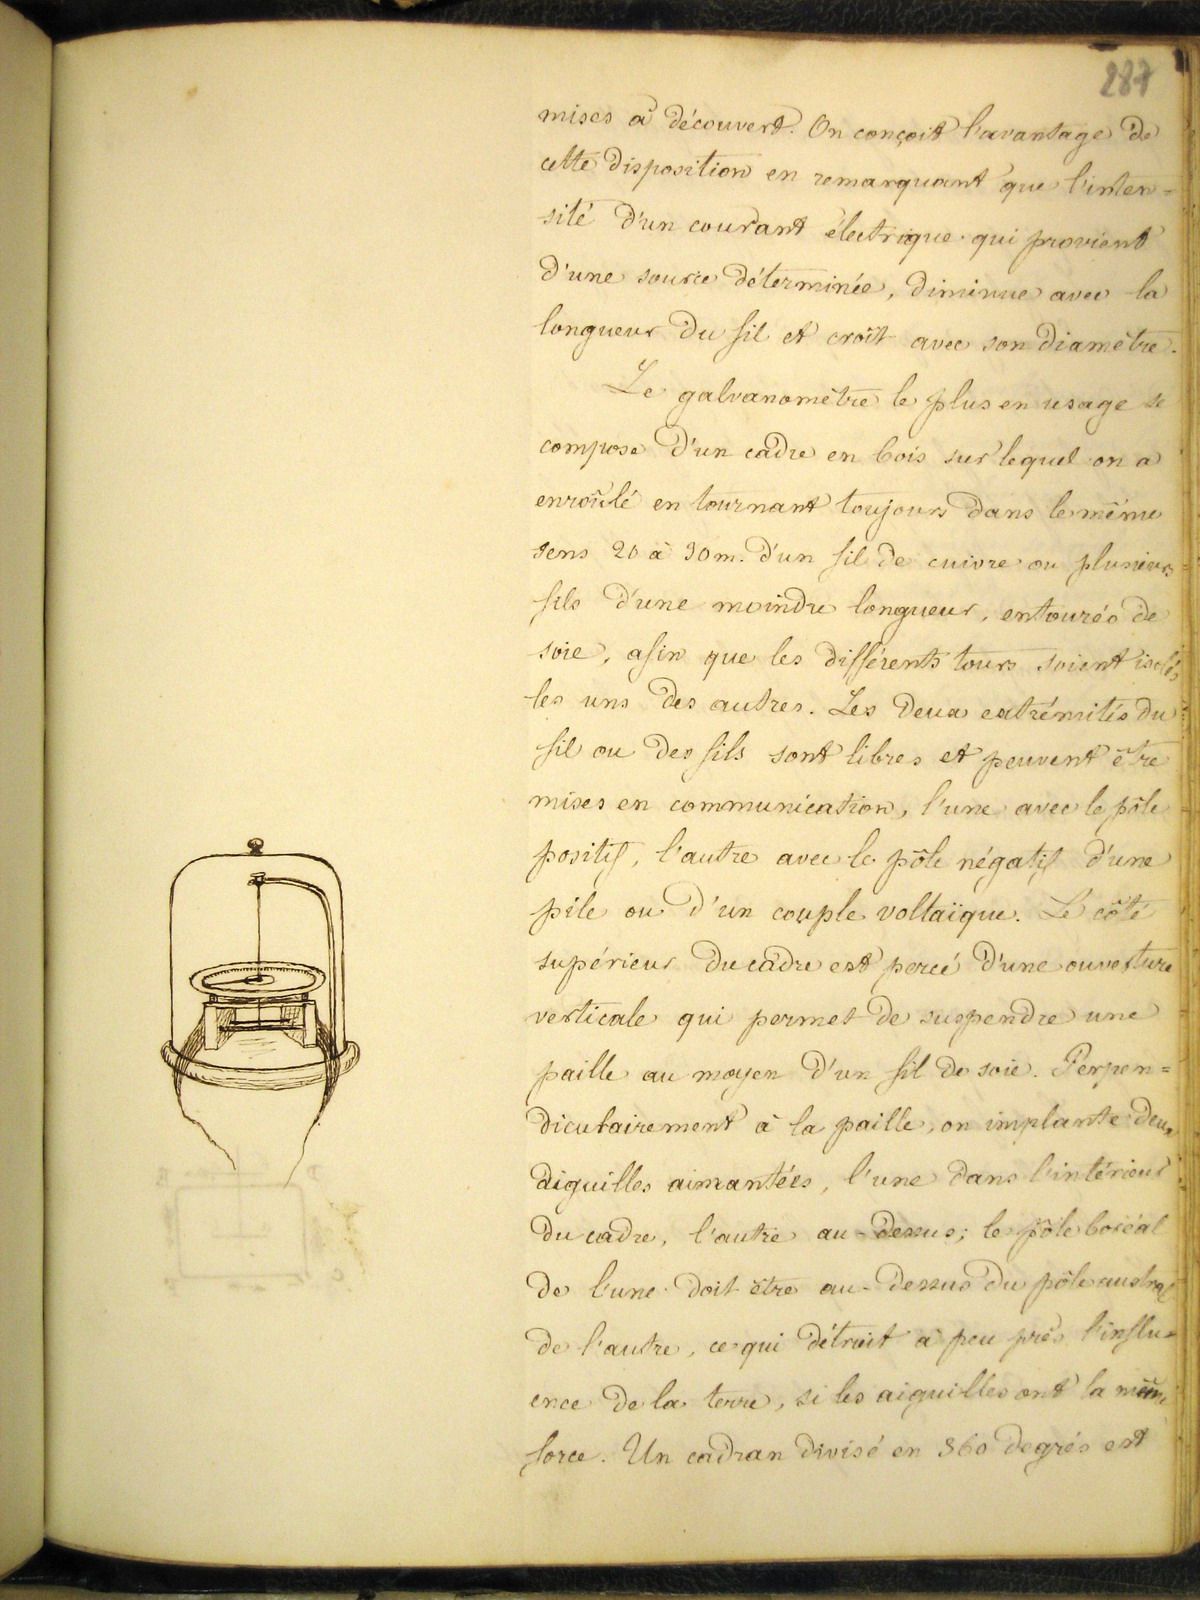 287
mises à découvert. On conçoit l'avantage de
cette disposition en remarquant que l'inten=
sité d'un courant électrique qui provient
d'une source déterminée, diminue avec la
longueur du fil et croît avec son diamètre.
Le galvanomètre le plus en usage se
compose d'un cadre en bois sur lequel on a
enroulé en tournant toujours dans le même
sens 20 à 30m. d'un fil de cuivre ou plusieurs
fils d'une moindre longueur, entourés de
soie, afin que les différents tours soient isolés
les uns des autres. Les deux extrémités du
fil ou des fils sont libres et peuvent être
mises en communication, l'une avec le pôle
positif, l'autre avec le pôle négatif d'une
pile ou d'un couple voltaïque. Le côté
supérieur du cadre est percé d'une ouverture
verticale qui permet de suspendre une
paille au moyen d'un fil de soie. Perpen=
diculairement à la paille, on implante deux
aiguilles aimantées, l'une dans l'intérieur
du cadre, l'autre au-dessus; le pôle boréal
de l'une doit être au-dessus du pôle austral
de l'autre, ce qui détruit à peu près l'influ=
ence de la terre, si les aiguilles ont la même
force. Un cadran divisé en 360 degrés est